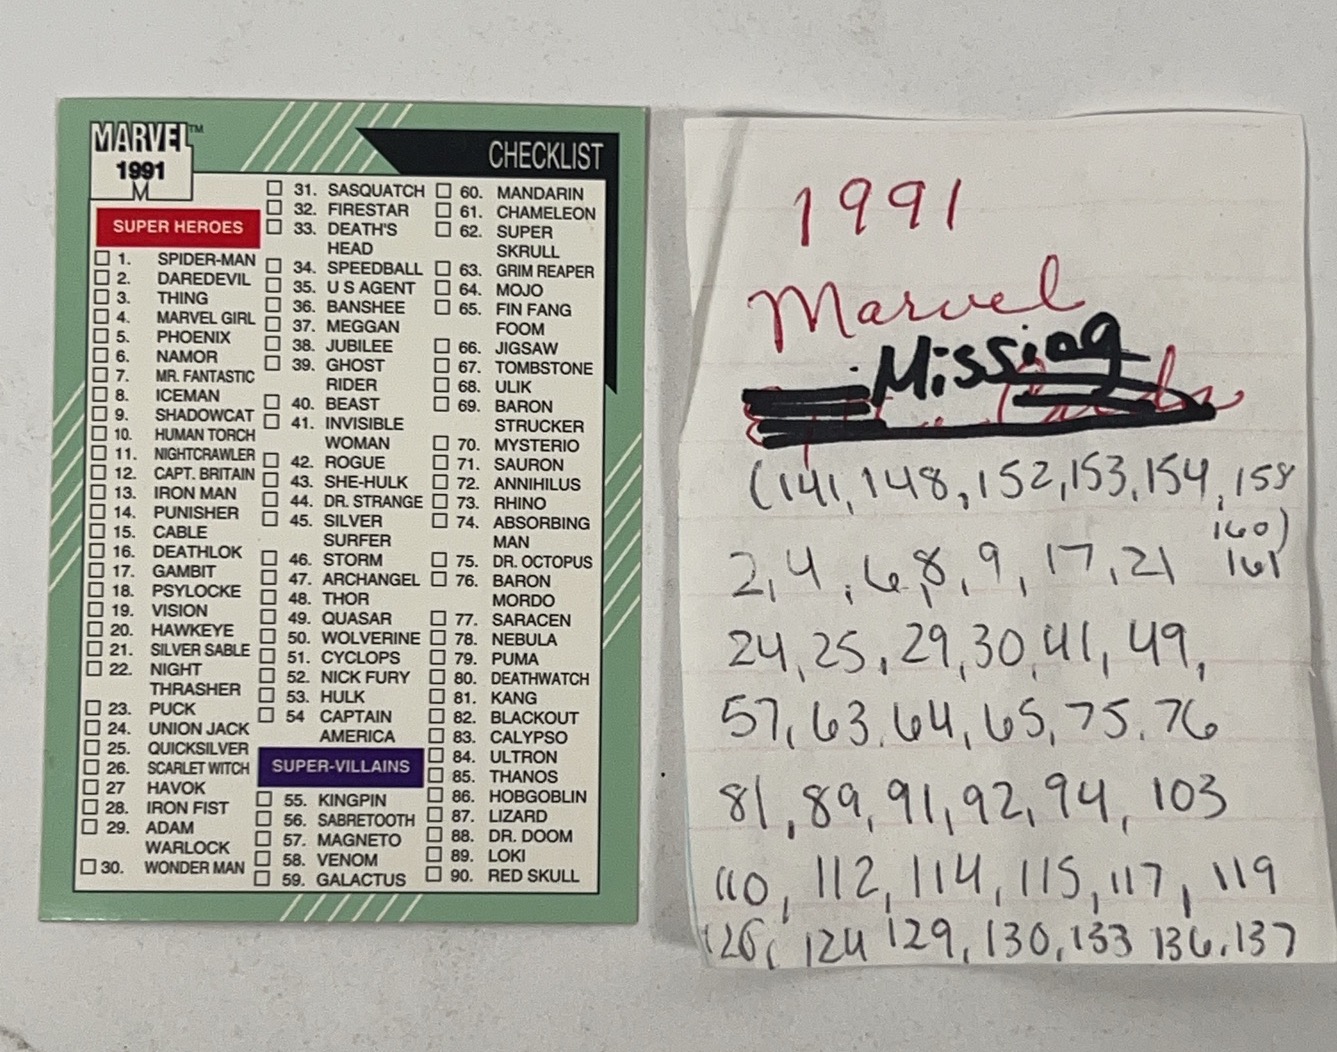 MARVEL™
1991
M
CHECKLIST
SUPER HEROES
1. SPIDER-MAN
2. DAREDEVIL
3. THING
4. MARVEL GIRL
5. PHOENIX
6. NAMOR
7. MR. FANTASTIC
8. ICEMAN
9. SHADOWCAT
10. HUMAN TORCH
11. NIGHTCRAWLER
12. CAPT. BRITAIN
13. IRON MAN
14. PUNISHER
15. CABLE
16. DEATHLOK
17. GAMBIT
18. PSYLOCKE
19. VISION
20. HAWKEYE
21. SILVER SABLE
22. NIGHT
THRASHER
23. PUCK
24. UNION JACK
25. QUICKSILVER
26. SCARLET WITCH
27 HAVOK
28. IRON FIST
29. ADAM
WARLOCK
30. WONDER MAN
31. SASQUATCH
32. FIRESTAR
33. DEATH'S
HEAD
34. SPEEDBALL
35. U S AGENT
36. BANSHEE
37. MEGGAN
38. JUBILEE
39. GHOST
RIDER
40. BEAST
41. INVISIBLE
WOMAN
42. ROGUE
43. SHE-HULK
44. DR. STRANGE
45. SILVER
SURFER
46. STORM
47. ARCHANGEL
48. THOR
49. QUASAR
50. WOLVERINE
51. CYCLOPS
52. NICK FURY
53. HULK
54 CAPTAIN
AMERICA
SUPER-VILLAINS
55. KINGPIN
56. SABRETOOTH
57. MAGNETO
58. VENOM
59. GALACTUS
60. MANDARIN
61. CHAMELEON
62. SUPER
SKRULL
63. GRIM REAPER
64. MOJO
65. FIN FANG
FOOM
66. JIGSAW
67. TOMBSTONE
68. ULIK
69. BARON
STRUCKER
70. MYSTERIO
71. SAURON
72. ANNIHILUS
73. RHINO
74. ABSORBING
MAN
75. DR. OCTOPUS
76. BARON
MORDO
77. SARACEN
78. NEBULA
79. PUMA
80. DEATHWATCH
81. KANG
82. BLACKOUT
83. CALYPSO
84. ULTRON
85. THANOS
86. HOBGOBLIN
87. LIZARD
88. DR. DOOM
89. LOKI
90. RED SKULL
1991
Marvel
Missing
(141, 148, 152, 153, 154, 158
160)
2, 4, 6, 8, 9, 17, 21 161
24, 25, 29, 30, 41, 49,
57, 63, 64, 65, 75, 76
81, 89, 91, 92, 94, 103
110, 112, 114, 115, 117, 119
124 129, 130, 133 136, 137